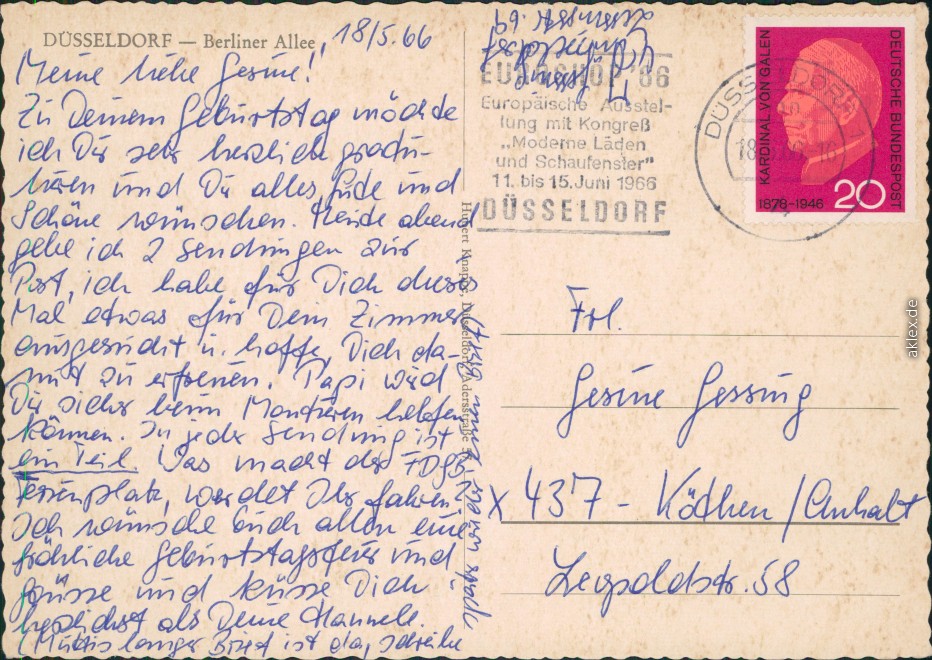 DÜSSELDORF — Berliner Allee
18/5.66
Meine liebe Gesine!
Zu Deinem Geburtstag möchte
ich Dir sehr herzlich gratu-
lieren und Dir alles Gute und
Schöne wünschen. Heute abend
gebe ich 2 Sendungen zur
Post, ich habe für Dich dieses
Mal etwas für Dein Zimmer
ausgesucht u. hoffe, Dich da-
mit zu erfreuen. Papi wird
Dir sicher beim Montieren helfen
können. In jeder Sendung ist
ein Teil. Was macht der FDGB
Ferienplatz, werdet Ihr fahren?
Ich wünsche Euch allen eine
fröhliche Geburtstagsfeier und
grüsse und küsse Dich
herzlichst als Deine Hannele.
(Muttis langer Brief ist da, schreibe
später
Hubert Knapp, Düsseldorf, Adersstraße
Düsseldorf
EUROSHOP '66
Europäische Ausstel-
lung mit Kongreß
„Moderne Läden
und Schaufenster"
11. bis 15. Juni 1966
DÜSSELDORF
DÜSSELDORF 1
KARDINAL VON GALEN
1878-1946
DEUTSCHE BUNDESPOST
20
Frl.
Gesine Gessing
X 437 - Köthen/Anhalt
Leopoldstr. 58
aklex.de